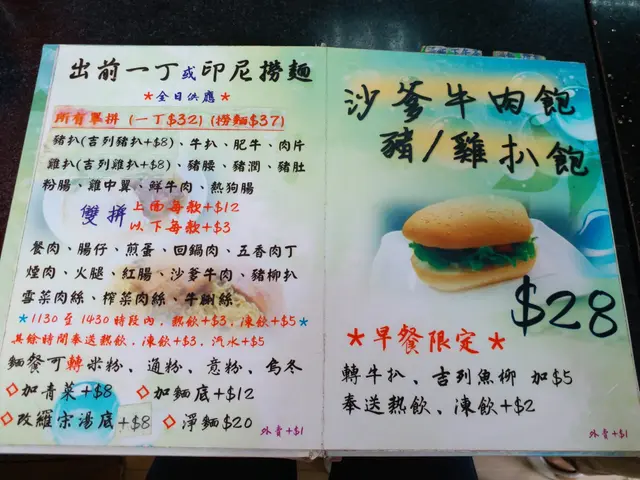 出前一丁或印尼撈麵
*全日供應*
所有單拼(一丁$32)(撈麵$37)
豬扒(吉列豬扒+$8)、牛扒、肥牛、肉片
雞扒(吉列雞扒+$8)、豬腰、豬潤、豬肚
粉腸、雞中翼、鮮牛肉、熱狗腸
雙拼 上面每款+$12
以下每款+$3
餐肉、腸仔、煎蛋、回鍋肉、五香肉丁
煙肉、火腿、紅腸、沙爹牛肉、豬柳扒
雪菜肉絲、榨菜肉絲、牛脷絲
*1130至1430時段內,熱飲+$3,凍飲+$5*
其餘時間奉送熱飲,凍飲+$3,汽水+$5
麵餐可轉米粉、通粉、意粉、烏冬
◇加青菜+$8 ◇加麵底+$12
◇改羅宋湯底+$8 ◇淨麵$20
外賣+$1
沙爹牛肉飽
豬/雞扒飽
$28
*早餐限定*
轉牛扒、吉列魚柳 加$5
奉送熱飲、凍飲+$2
外賣+$1